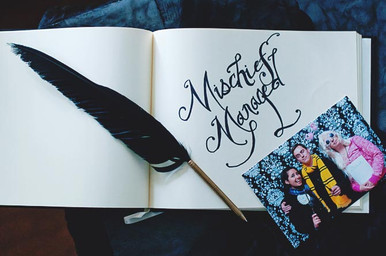 Mischief
Managed